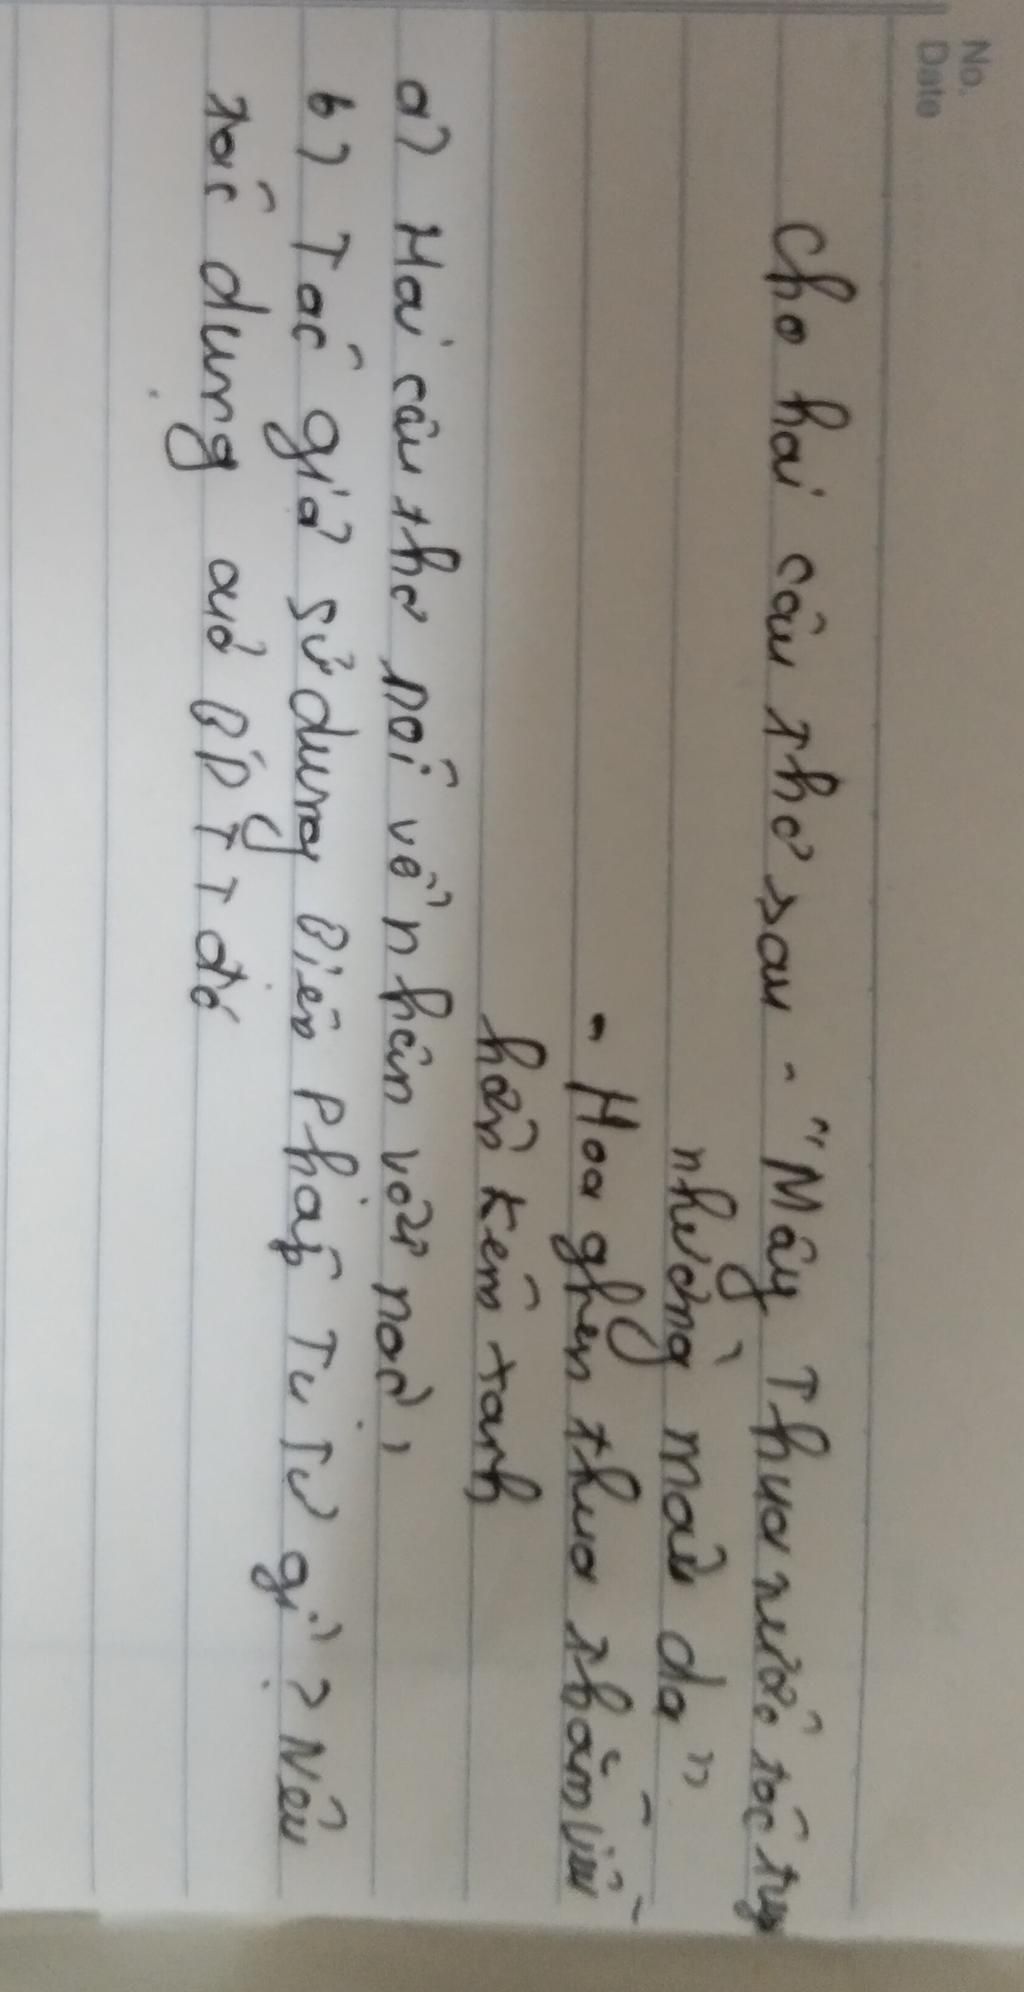 No.
Date
Cho hai câu thơ sau - "Mây Thua nước tóc tuyết
nhường màu da"
- Hoa ghen thua thắm liễu
hờn kém xanh
a) Hai câu thơ nói về nhân vật nào?
b) Tác giả sử dụng Biện Pháp Tu Từ gì? Nêu
tác dụng của BPTT đó